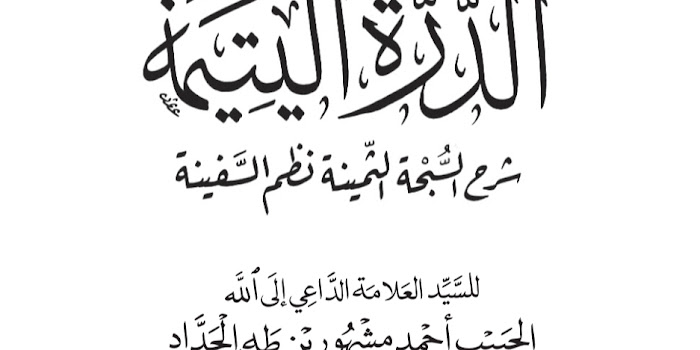 الدُّرَّةُ اليَتِيمَةُ
شرح السُّبْحَة الثَّمينة نظم السَّفينة
للسَّيِّد العَلامَة الدَّاعِي إلَى ٱللَّه
الحَبيْب أحْمَد مشْهُور بْن طه الحَدَّاد